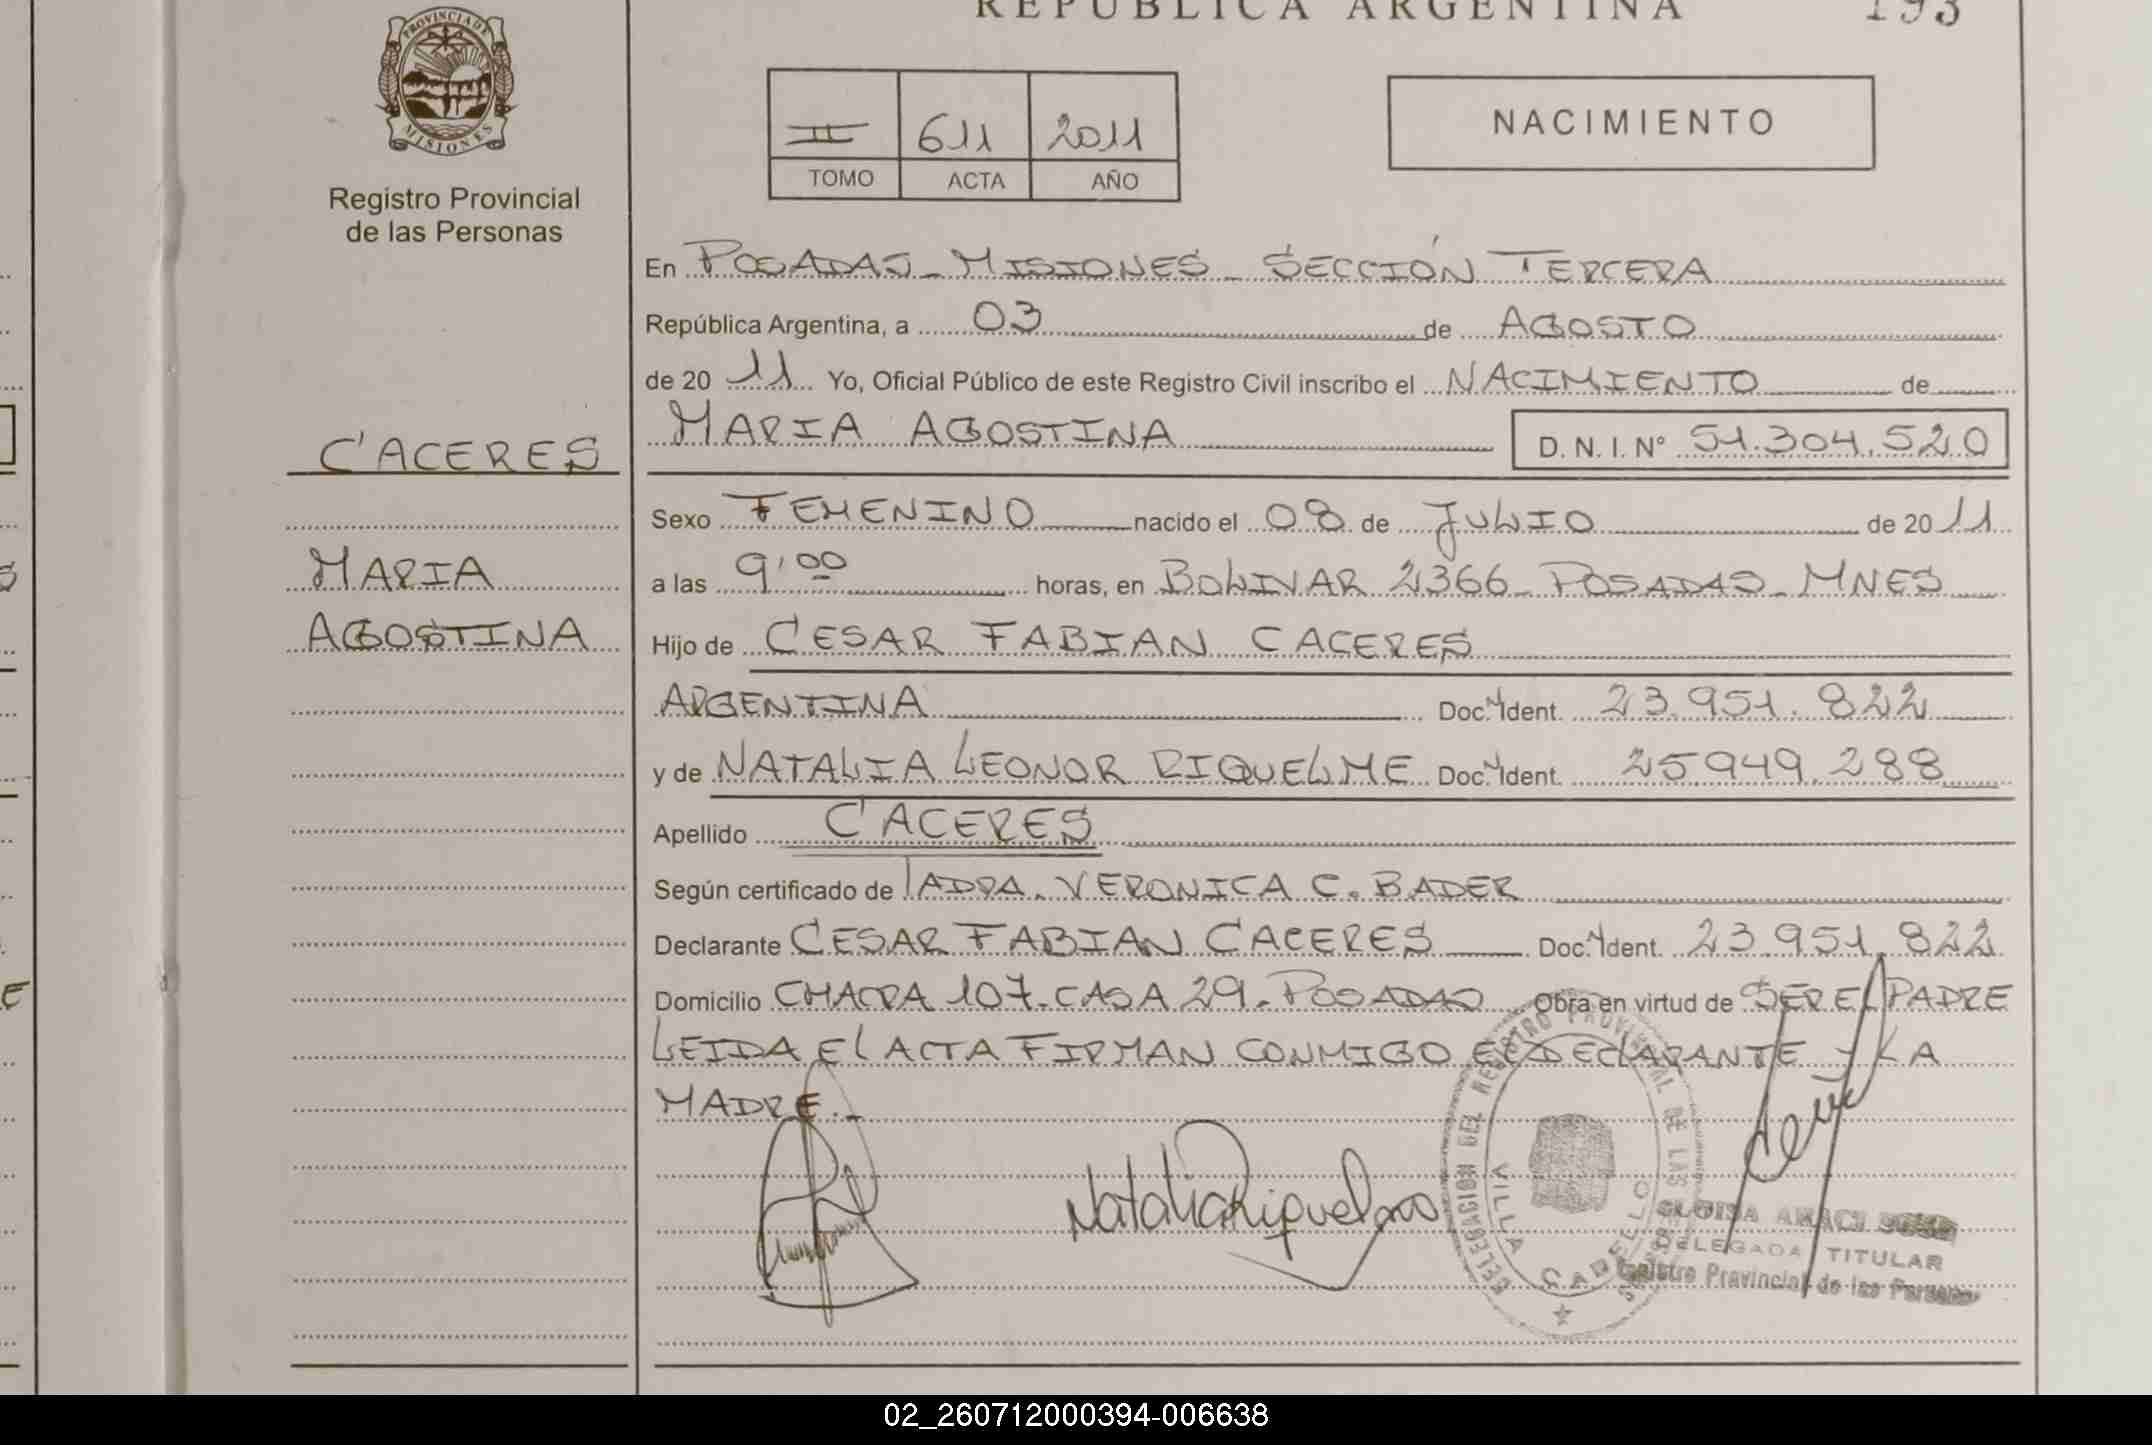 REPUBLICA ARGENTINA 193
PROVINCIA DE
MISIONES
Registro Provincial
de las Personas
II 611 2011
TOMO ACTA AÑO
NACIMIENTO
En POSADAS - MISIONES - SECCIÓN TERCERA
República Argentina, a 03 de AGOSTO
de 2011 Yo, Oficial Público de este Registro Civil inscribo el NACIMIENTO de
MARIA AGOSTINA D. N. I. N° 51.304.520
CACERES
MARIA
AGOSTINA
Sexo FEMENINO nacido el 08 de JULIO de 2011
a las 9'00 horas, en BOLIVAR 2366 - POSADAS - MNES
Hijo de CESAR FABIAN CACERES
ARGENTINA Doc. Ident. 23.951.822
y de NATALIA LEONOR RIQUELME Doc. Ident. 25949.288
Apellido CACERES
Según certificado de VERONICA C. BADER
Declarante CESAR FABIAN CACERES Doc. Ident. 23.951.822
Domicilio CHACRA 107 - CASA 29 - POSADAS Obra en virtud de SER EL PADRE
LEIDA EL ACTA FIRMAN CONMIGO EL DECLARANTE Y LA
MADRE.-
Natalia Riquelme
DELEGACION DEL REGISTRO PROVINCIAL DE LAS
VILLA CABELLO
DELEGADA TITULAR
Registro Provincial de las Personas
02_260712000394-006638